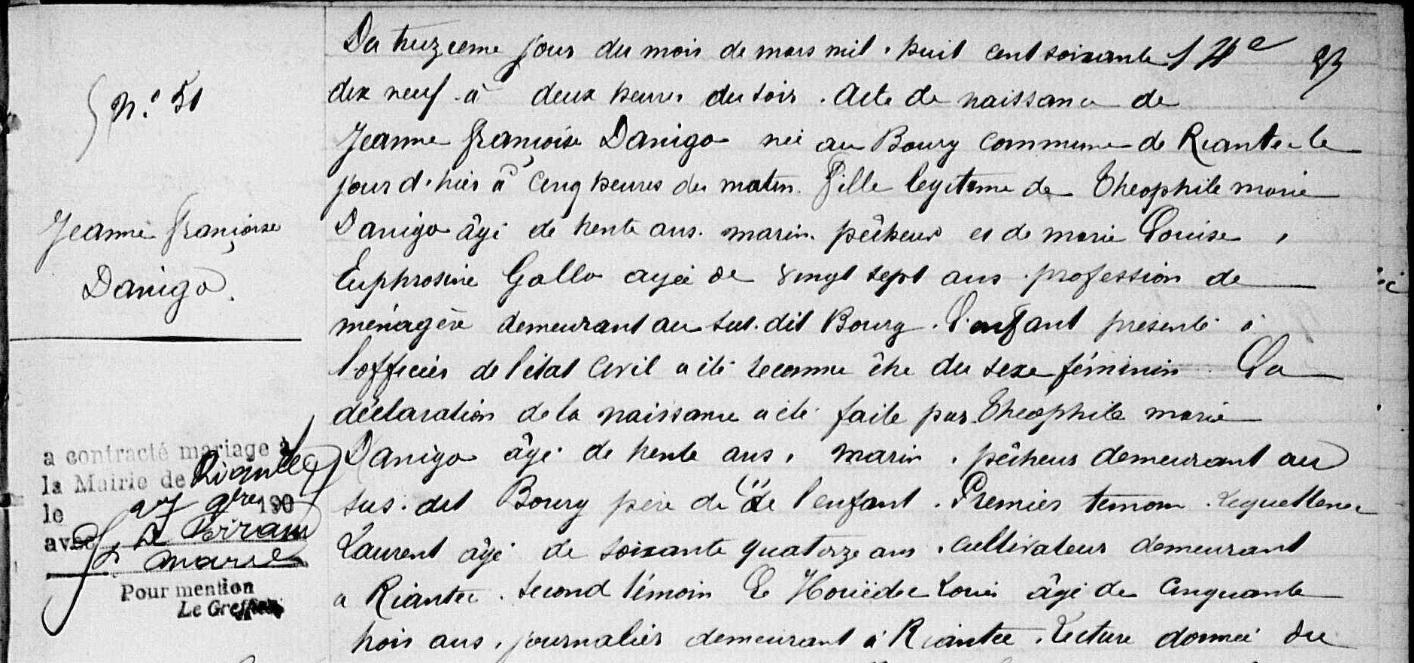 Du treizieme jour du mois de mars mil huit cent soixante
dix neuf à deux heures du soir. Acte de naissance de
Jeanne françoise Danigo née au Bourg commune de Riantec le
jour d'hier à cinq heures du matin. Fille legitime de Theophile marie
Danigo âgé de trente ans. marin pêcheur et de marie Louise,
Euphrosine Gallo agée de vingt sept ans profession de
ménagère demeurant au sus-dit Bourg. L'enfant présenté à
l'officier de l'état civil a été reconnu être du sexe féminin. La
déclaration de la naissance a été faite par Theophile marie
Danigo âgé de trente ans, marin, pêcheur demeurant au
sus-dit Bourg père de de l'enfant. Premier temoin
Laurent âgé de soixante quatorze ans, cultivateur demeurant
a Riantec. Second témoin Le Louis âgé de cinquante
trois ans, journalier demeurant à Riantec. Lecture donnée du
N.° 51
Jeanne françoise
Danigo.
a contracté mariage à
la Mairie de Riantec
le 27 9bre 190
avec
marie
Pour mention
Le Greffier